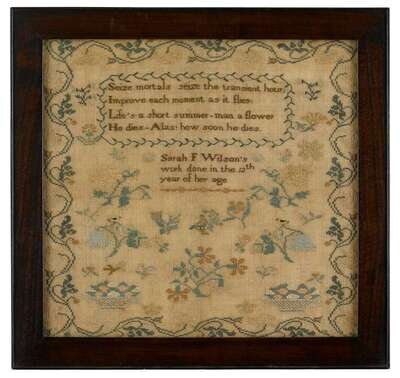 Seize mortals seize the transient hour
Improve each moment as it flies:
Life's a short summer-man a flower
He dies-Alas: how soon he dies.
Sarah F Wilson's
work done in the 12th
year of her age